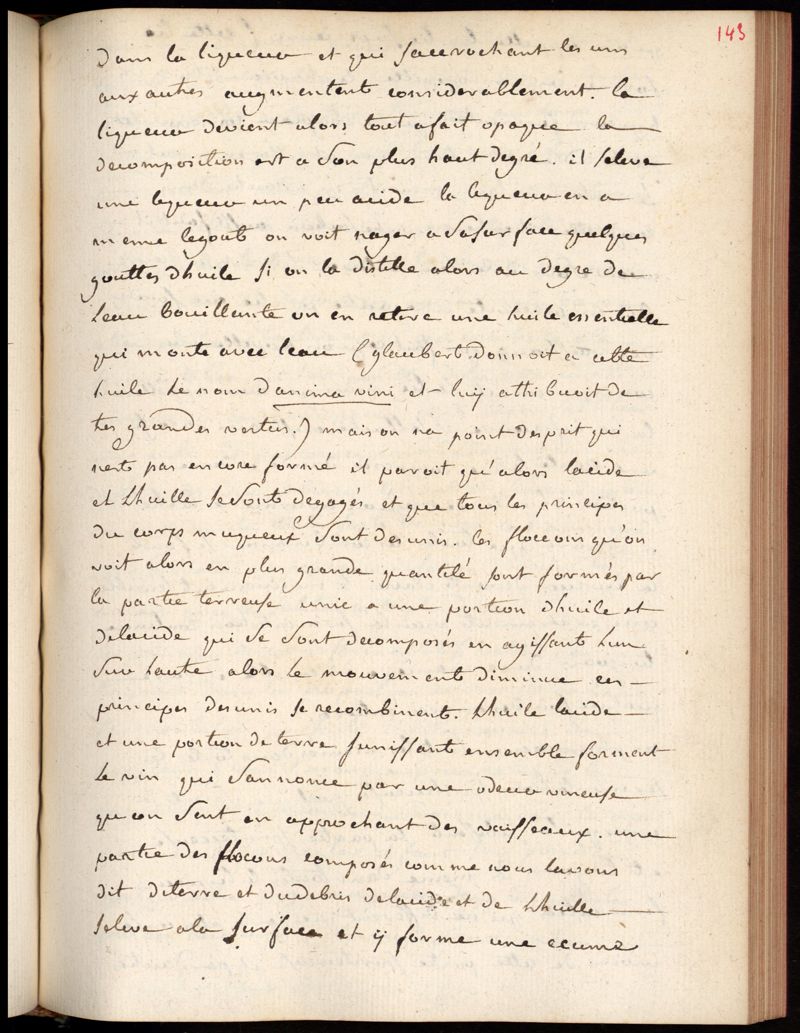 143
dans la liqueur et qui saccrochant les uns
aux autres augmentent considerablement. la
liqueur devient alors tout afait opaque la
decomposition est a son plus haut degré. il seleve
une liqueur un peu acide la liqueur en a
meme legout on voit nager a sa surface quelques
gouttes dhuile si on la distille alors au degre de
leau bouillante on en retire une huile essentielle
qui monte avec leau (glaubert donnoit a cette
huile le nom danima vini et luy attribuoit de
tres grandes vertus.) mais on na point desprit qui
nest pas encore formé il paroit qu'alors lacide
et lhuille se sont degagés et que tous les principes
du corps muqueux sont desunis. les floccons qu'on
voit alors en plus grande quantité sont formés par
la partie terreuse unie a une portion dhuile et
delacide qui se sont decomposés en agissant lun
sur lautre alors le mouvement diminue ces
principes desunis se recombinent. lhuile lacide
et une portion de terre sunissant ensemble forment
le vin qui sannonce par une odeur vineuse
qu on sent en approchant des vaisseaux. une
partie des flocons composés comme nous lavons
dit deterre et dudebris delacide et de lhuille
seleve ala surface et y forme une ecume